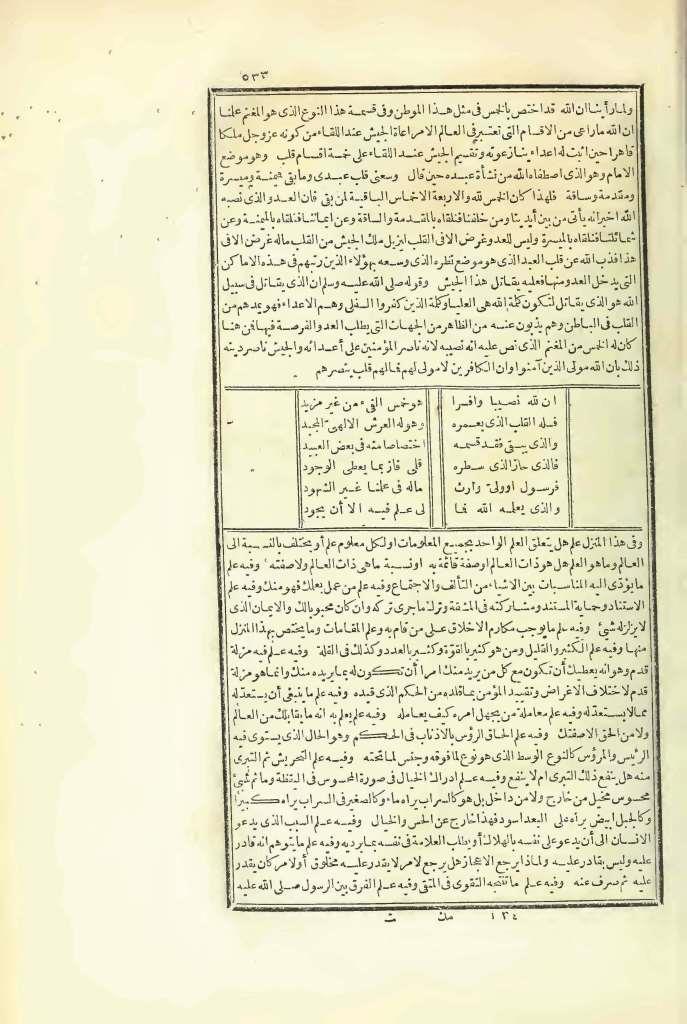 ٥٣٣
ولما رأينا ان الله قد اختص بالخمس فى مثل هذا الموطن وفى قسمة هذا النوع الذى هو المغنم علمنا
ان الله ما راعى من الاقسام التى تعتبر فى العالم الامراعاة الجيش عند اللقاء من كونه عز وجل ملكا
قاهرا حين اثبت له اعداء ينازعونه وتقسيم الجيش عند اللقاء على خمسة اقسام قلب وهو موضع
الامام وهو الذى اصطفاه الله من نشأة عبده حين قال وسعنى قلب عبدى وما بقى ميمنة وميسرة
ومقدمة وساقة فلهذا كان الخمس لله والاربعة الاخماس الباقية لمن بقى فان العدو الذى نصبه
الله اخبرانه يأتى من بين أيدينا ومن خلفنا فنلقاه بالمقدمة والساقة وعن ايماننا فنلقاه بالميمنة وعن
شمائلنا فنلقاه بالميسرة وليس للعدو غرض الا فى القلب ليزيل ملك الجيش من القلب ماله غرض الا فى
هذا فذب الله عن قلب العبد الذى هو موضع نظره الذى وسعه بهؤلاء الذين رتبهم فى هذه الاماكن
التى يدخل العدو منها فعليه يقاتل هذا الجيش وقوله صلى الله عليه وسلم ان الذى يقاتل فى سبيل
الله هو الذى يقاتل لتكون كلمة الله هى العليا وكلمة الذين كفروا السفلى وهم الاعداء فهو يمدهم من
القلب فى الباطن وهم يذبون عنه من الظاهر من الجهات التى يطلب العدو الفرصة فيها فمن هنا
كان له الخمس من المغنم الذى نص عليه انه نصيبه لانه ناصر المؤمنين على أعدائه والجيش ناصر دينه
ذلك بان الله مولى الذين آمنوا وان الكافرين لا مولى لهم فمالهم قلب ينصرهم
ان لله نصيبا وافرا هو خمس الفىء من غير مزيد
فله القلب الذى يعمره وهو له العرش الالهى المجيد
والذى يبقى فقد قسمه اختصاصا منه فى بعض العبيد
فالذى حاز الذى سطره قلى فاز بما يعطى الوجود
فرسول او ولى وارث ماله فى علمنا غير الشهود
والذى يعلمه الله فما لى علم فيه الا أن يجود
وفى هذا المنزل علم هل يتعلق العلم الواحد بجميع المعلومات او لكل معلوم علم أو يختلف بالنسبة الى
العالم وما هو العلم هل هو ذات العالم او صفة قائمة به او نسبة ما هى ذات العالم ولا صفته وفيه علم
ما يؤدى اليه المناسبات بين الاشياء من التألف والاجتماع وفيه علم من عمل بعملك فهو منك وفيه علم
الاستناد وحماية المستند ومشاركته فى المشقة وترك ما جرى تركه وان كان محبوبا لك والايمان الذى
لا يزلزله شئ وفيه علم ما يوجب مكارم الاخلاق على من قام به وعلم المقامات وما يختص بهذا المنزل
منها وفيه علم الكثير والقليل ومن هو كثير بالقوة وكثير بالعدد وكذلك فى القلة وفيه علم فيه مزلة
قدم وهو انه يعطيك أن تكون مع كل من يريد منك امرا أن تكون له بما يريده منك وانما هو مزلة
قدم لاختلاف الاغراض وتقييد المؤمن بما قلده من الحكم الذى قيده وفيه علم ما ينبغى أن يستعد له
مما لا يستعد له وفيه علم معاملة من يجهل امره كيف يعامله وفيه علم يعلم به انه ما يقابلك من العالم
ولا من الحق الا صفتك وفيه علم الحاق الرؤس بالاذناب فى الحكم وهو الحال الذى يستوى فيه
الرئيس والمرؤس كالنوع الوسط الذى هو نوع لما فوقه وجنس لما تحته وفيه علم التحريش ثم التبرى
منه هل ينفع ذلك التبرى ام لا ينفع وفيه علم ادراك الخيال فى صورة المحسوس فى اليقظة وما ثم شئ
محسوس مخيل من خارج ولا من داخل بل هو كالسراب يراه ماء وكالصغير فى السراب يراه كبيرا
وكالجبل ابيض يراه على البعد اسود فهذا خارج عن الحس والخيال وفيه علم السبب الذى يدعو
الانسان الى أن يدعو على نفسه بالهلاك أو يطلب العلامة فى نفسه بما يرديه وفيه علم ما يتوهم انه قادر
عليه وليس بقادر عليه ولماذا يرجع الاعجاز هل يرجع لامر لا يقدر عليه مخلوق أو لامر كان يقدر
عليه ثم صرف عنه وفيه علم ما تنتجه التقوى فى المتقى وفيه علم الفرق بين الرسول صلى الله عليه
١٣٤ مك ت